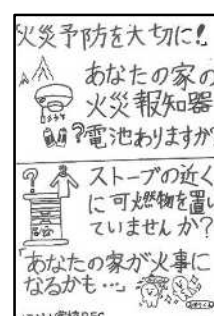 火災予防を大切に!
あなたの家の
火災報知器
?電池ありますか
?
ストーブの近く
に可燃物を置い
ていませんか?
「あなたの家が火事に
なるかも…」